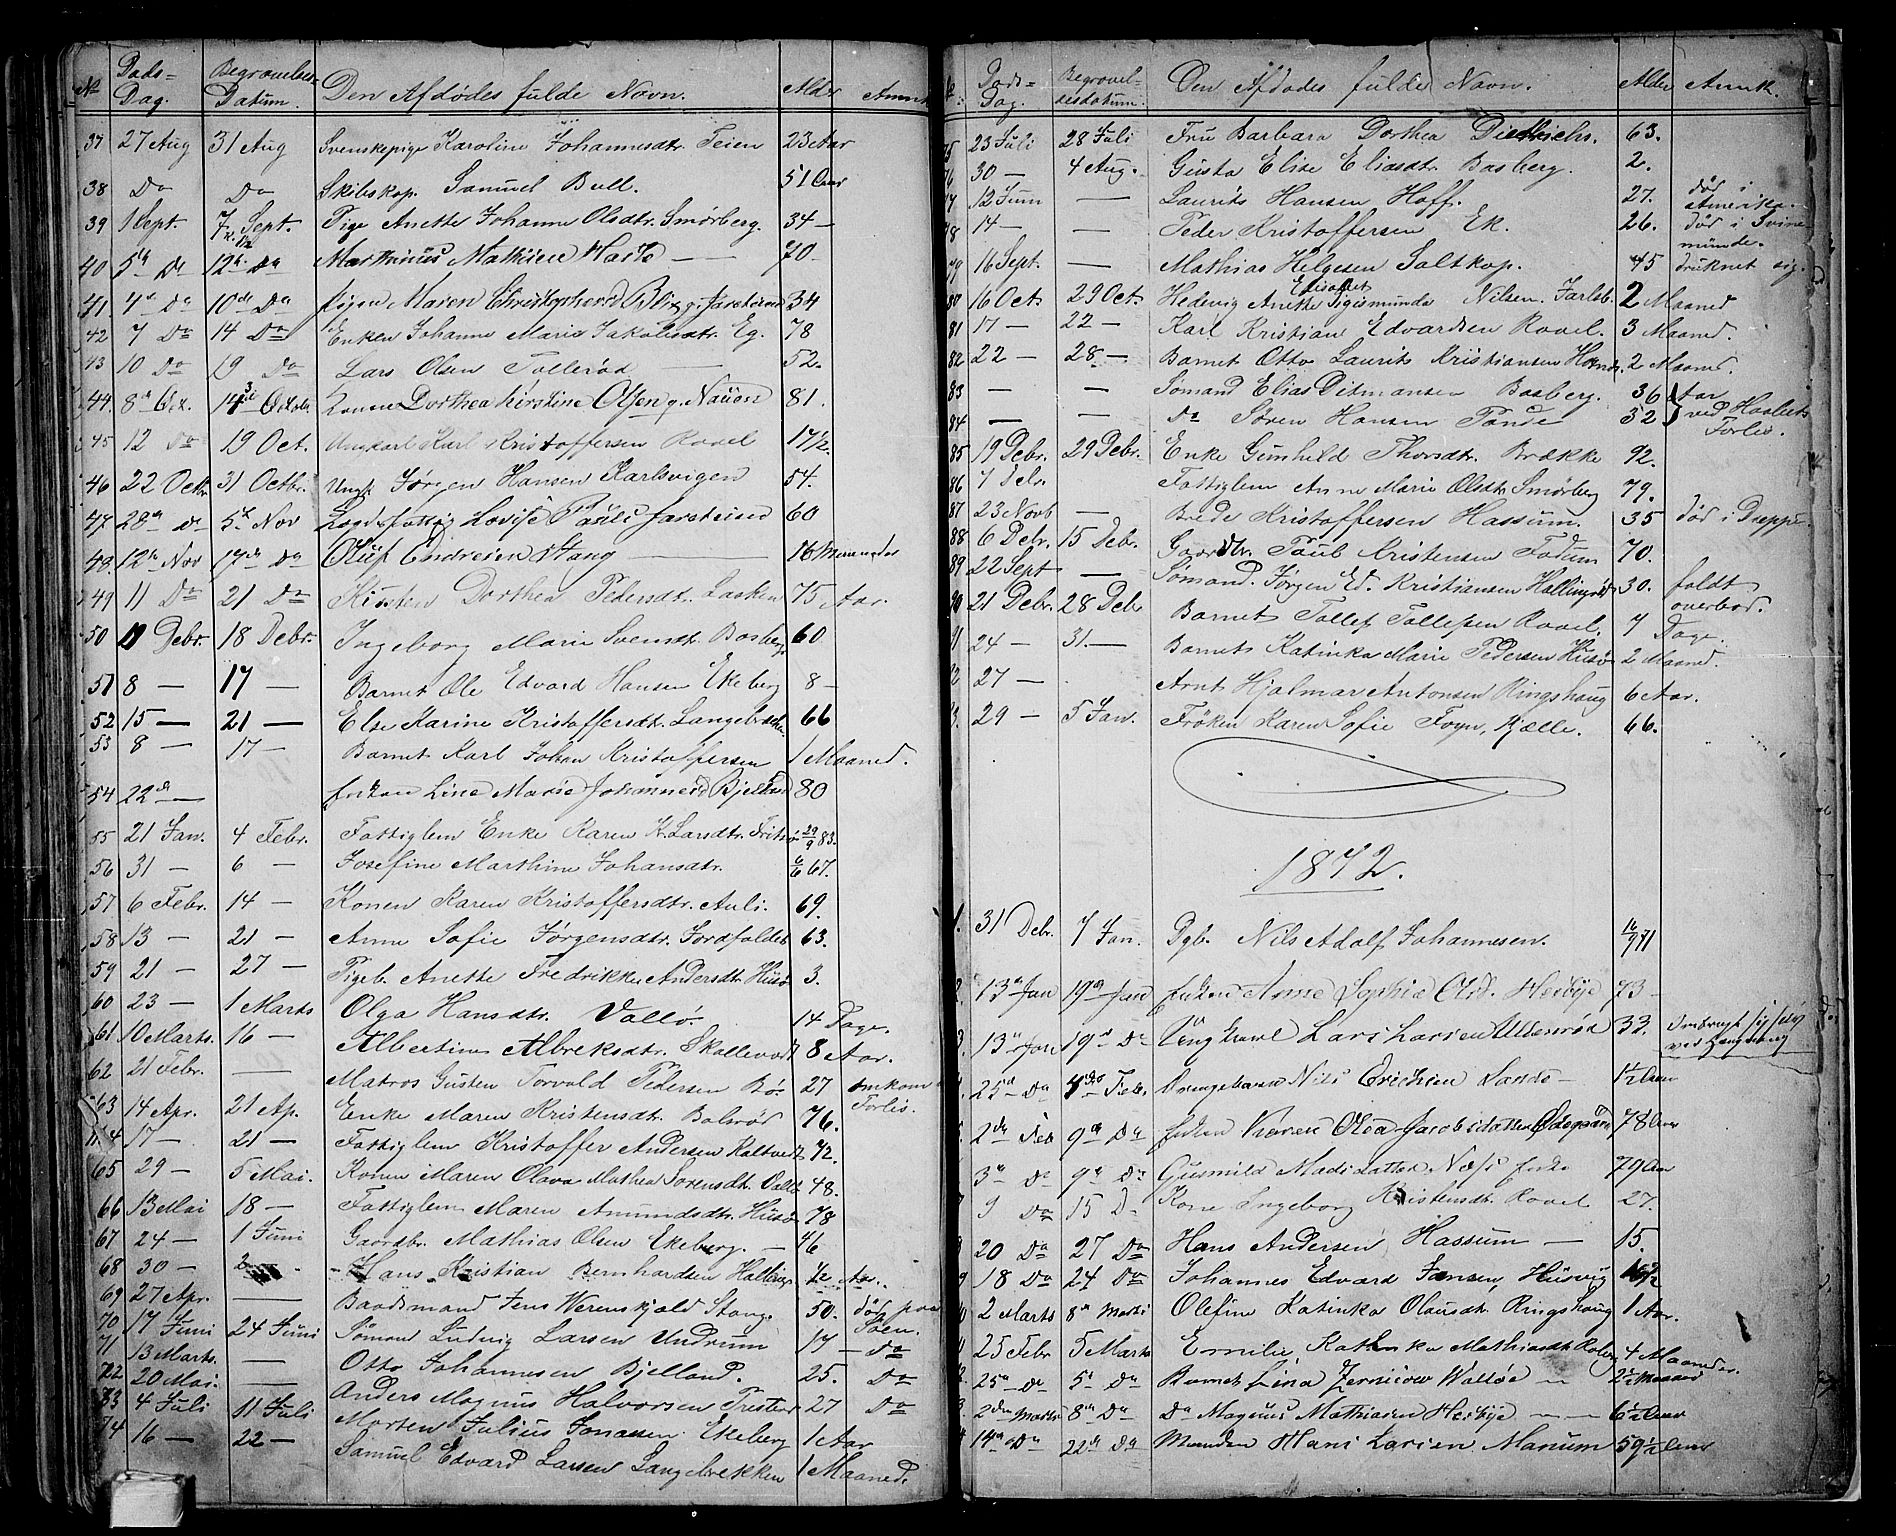 No Døds- Dag. Begravelses- Datum. Den Afdødes fulde Navn. Alder Anmk
37 27 Aug 31 Aug Svenskepige Karoline Johannesdtr. Teien 23 Aar
38 Do Do Skibskap. Samuel Bull. 51 Aar
39 1 Sept. 7 Sept. Pige Anette Johanne Olsdtr. Smørberg. 34 —
40 5te Do 12te Do Marthinus Mathisen 70
41 4de Do 10de Do Pigen Maren 34
42 7 Do 14 Do Enken Johanne Marie Jakobsdtr. Eg. 78
43 10 Do 19 Do Lars Olsen Tollerød 52.
44 8de Oct. Konen Dorthea Kirstine Olsen 81.
45 12 Do 19 Oct. Ungkarl Karl Kristoffersen Rovel 17½.
46 22 Octbr 31 Octbr. Ungk. Jørgen Hansen Karlsvigen 54.
47 28de Do 5te Nov Lovise 60
48. 12te Nov 17de Do Oluf Endresen Stang 16 Maaneder
49 11 Do 21 Do Kirsten Dorthea Pedersdtr. 75 Aar.
50 11 Debr. 18 Debr. Ingeborg Marie Svensdtr. Basberg 60
51 8 — 17 — Barnet Ole Edvard Hansen Ekeberg 8 —
52 15 — 21 — Else Karine Kristoffersdtr. Langebrække 66
53 8 — 17 — Barnet Karl Johan Kristoffersen 1 Maaned.
54 22de — Enken Line Marie 80
55 21 Jan. 4 Febr. Fattiglem Enke Karen K. Larsdtr. 29/9 83.
56 31 — 6 — Josefine Marthine Johansdtr. 67.
57 6 Febr. 14 — Konen Karen Kristoffersdtr. Auli. 69.
58 13 — 21 — Anne Sofie Jørgensdtr. 63.
59 21 — 27 — Pigeb. Anette Fredrikke Andersdtr. Husø 3.
60 23 — 1 Marts Olga Hansdtr. Vallø. 14 Dage.
61 10 Marts. 16 — Albertine Albreksdtr. Skallevold 8 Aar.
62 21 Febr. — Matros Gusten Torvald Pedersen Bø. 27 omkom Forlis.
63 14 Apr. 21 Ap. Enke Maren Kristensdtr. Bolsrød 76.
17 — 21 — Fattiglem Kristoffer Andersen 72.
65 29 — 5 Mai. Konen Maren Olava Mathea Sørensdtr. 48.
66 13 Mai 18 — Fattiglem Maren Amundsdtr. Husø 78
67 24 — 1 Juni Gaardbr. Mathias Olsen Ekeberg. — 46
68 30 — Hans Kristian Bernhardsen ½ Aar.
69 27 Apr. — Baadsmand Jens Werenskjold Stang. 50. Død paa Søen.
70 17 Juni 24 Juni Sømand Ludvig Larsen Undrum 17 — Do
71 13 Marts. — Otto Johannesen Bjelland. 25. Do
72 20 Mai. Anders Magnus Halvorsen 27 Do
73 4 Juli 11 Juli Morten Julius Jonassen Ekeberg 1 Aar
74 16 — 22 — Samuel Edvard Larsen Langebrekken 1 Maaned.
Døds- Dag. Begravel- sesdatum. Den Afdødes fulde Navn. Alder Anmk.
75 23 Juli 28 Juli Fru Barbara Dorthea Diethrichs. 63.
76 30 — 4 Aug. Gusta Elise Eliasdtr. Basberg. 2.
77 12 Juni — Laurits Hansen Hoff. 27. død i Amerika.
78 14 — — Peder Kristoffersen Ek. 26. død i Svinemünde.
79 16 Sept. — Mathias Helgesen Saltkop. 45 druknet sig.
80 16 Oct 29 Oct. Hedevig Anette Elisabet Sigismunda Nilsen. Jarlsb. 2 Maaned
81 17 — 22 — Karl Kristian Edvardsen Rovel. 3 Maaned.
82 22 — 28 — Barnet Otto Laurits Kristiansen 2 Maaned.
83 — — Sømand Elias Ditmansen Basberg. 36 Aar
84 — — Do Søren Hansen Tande 32 } ved Haabets Forlis.
85 19 Debr. 29 Debr. Enke Gunhild Thorsdtr. Brække 92.
86 7 Debr. Fattiglem Anne Marie Olsdtr. Smørberg 79.
87 23 Novb — Brede Kristoffersen Hassum. 35 død i Dieppe.
88 6 Debr. 15 Debr. Gaardbr. Paul Kristensen Fadum 70.
89 22 Sept — Sømand. Jørgen Ed. Kristiansen Hallingrød 30. faldt overbord.
90 21 Debr. 28 Debr Barnet Tollef Tollefsen Rovel. 7 Dage.
91 24 — 31. — Barnet Katinka Marie Pedersen Husø 2 Maaned.
27 — Arnt Hjalmar Antonsen Ringshaug 6 Aar.
29 — 5 Jan. Frøken Karen Sofie Foyn, Kjælle. 66.
1872.
1. 31 Debr. 7 Jan. Dgb. Nils Adolf Johannesen. 16/9 71
13de Jan 19de Jan Enken Anne Sophie Olsd. Heibye 73 —
13de Jan 19de Do Ungkarl Lars Larsen Ullensrød 33. Ombragt sig selv ved Hængning
25de Do 4de Feb. Drengebarn Nils Erichsen Sande — 1½ Aar
2den Feb 9de Do Enken Karen Olea Jacobsdatter Ødegaard 78 Aar
3de Do 9de Do Gunnild Madsdatter Næss Enke 79 Aar
9 Do 15 Do Kone Ingeborg Kristensdtr. Rovel 27.
20 Do 27 Do Hans Andersen Hassum — 15.
9 18 Do 24 Do Johannes Edvard Jansen, Husvig
2 Marts 8de Marts Olefine Katinka Olausdtr. Ringshaug 1 Aar.
25 Febr 5 Marts Emilie Kathinka Mathiasdtr. 4 Maaneder.
25de Do 5te Do Barnet Lina Zernicow Walløe — 2½ Maaned
2den Marts 8de Do Do Magnus Mathisen Heibye — — 6½ Aar
14de Do 22de Do Manden Hans Larsen Manum 59½ Aar